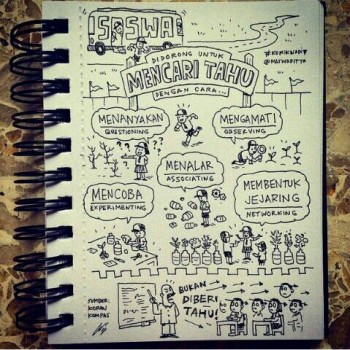 SISWA
DIDORONG UNTUK
MENCARI TAHU
DENGAN CARA...
#KOMIKWADIT
@MASWADITYA
MENANYAKAN
QUESTIONING
MENGAMATI
OBSERVING
MENALAR
ASSOCIATING
MENCOBA
EXPERIMENTING
MEMBENTUK
JEJARING
NETWORKING
SUMBER:
KORAN
KOMPAS
BUKAN
DIBERI
TAHU!